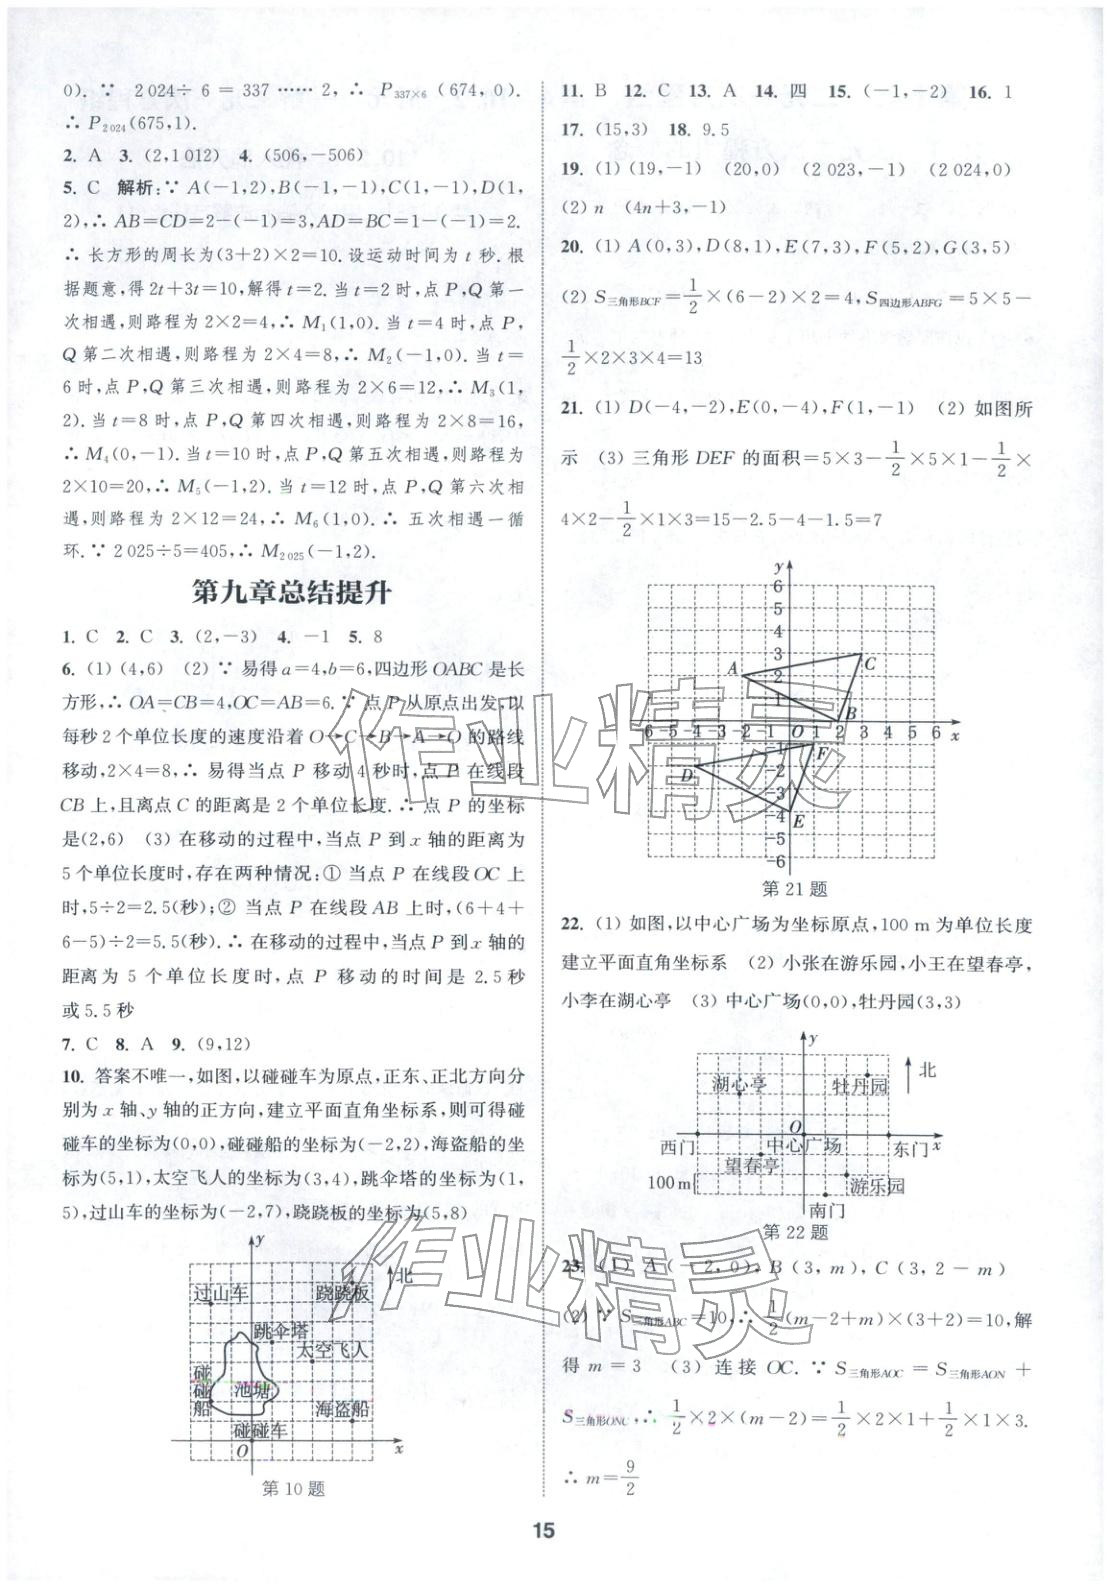 0). ∵ 2 024÷6=337……2, ∴ P₃₃₇ₓ₆(674,0).
∴ P₂₀₂₄(675,1).
2. A 3. (2,1 012) 4. (506,-506)
5. C 解析:∵ A(-1,2),B(-1,-1),C(1,-1),D(1,
2),∴ AB=CD=2-(-1)=3,AD=BC=1-(-1)=2.
∴ 长方形的周长为(3+2)×2=10. 设运动时间为 t 秒. 根
据题意,得 2t+3t=10,解得 t=2. 当 t=2 时,点 P,Q 第一
次相遇,则路程为 2×2=4,∴ M₁(1,0). 当 t=4 时,点 P,
Q 第二次相遇,则路程为 2×4=8,∴ M₂(-1,0). 当 t=
6 时,点 P,Q 第三次相遇,则路程为 2×6=12,∴ M₃(1,
2). 当 t=8 时,点 P,Q 第四次相遇,则路程为 2×8=16,
∴ M₄(0,-1). 当 t=10 时,点 P,Q 第五次相遇,则路程为
2×10=20,∴ M₅(-1,2). 当 t=12 时,点 P,Q 第六次相
遇,则路程为 2×12=24,∴ M₆(1,0). ∴ 五次相遇一循
环. ∵ 2 025÷5=405,∴ M₂₀₂₅(-1,2).
第九章总结提升
1. C 2. C 3. (2,-3) 4. -1 5. 8
6. (1) (4,6) (2) ∵ 易得 a=4,b=6,四边形 OABC 是长
方形,∴ OA=CB=4,OC=AB=6. ∵ 点 P 从原点出发,以
每秒 2 个单位长度的速度沿着 O→C→B→A→O 的路线
移动,2×4=8,∴ 易得当点 P 移动 4 秒时,点 P 在线段
CB 上,且离点 C 的距离是 2 个单位长度. ∴ 点 P 的坐标
是(2,6) (3) 在移动的过程中,当点 P 到 x 轴的距离为
5 个单位长度时,存在两种情况:① 当点 P 在线段 OC 上
时,5÷2=2.5(秒);② 当点 P 在线段 AB 上时,(6+4+
6-5)÷2=5.5(秒). ∴ 在移动的过程中,当点 P 到 x 轴的
距离为 5 个单位长度时,点 P 移动的时间是 2.5 秒
或 5.5 秒
7. C 8. A 9. (9,12)
10. 答案不唯一,如图,以碰碰车为原点,正东、正北方向分
别为 x 轴、y 轴的正方向,建立平面直角坐标系,则可得碰
碰车的坐标为(0,0),碰碰船的坐标为(-2,2),海盗船的坐
标为(5,1),太空飞人的坐标为(3,4),跳伞塔的坐标为(1,
5),过山车的坐标为(-2,7),跷跷板的坐标为(5,8)
y
北
过山车 跷跷板
跳伞塔
太空飞人
碰碰船 池塘
海盗船
碰碰车
O x
第 10 题
11. B 12. C 13. A 14. 四 15. (-1,-2) 16. 1
17. (15,3) 18. 9.5
19. (1) (19,-1) (20,0) (2 023,-1) (2 024,0)
(2) n (4n+3,-1)
20. (1) A(0,3),D(8,1),E(7,3),F(5,2),G(3,5)
(2) S三角形BCF=1/2×(6-2)×2=4,S四边形ABFG=5×5-
1/2×2×3×4=13
21. (1) D(-4,-2),E(0,-4),F(1,-1) (2) 如图所
示 (3) 三角形 DEF 的面积=5×3-1/2×5×1-1/2×
4×2-1/2×1×3=15-2.5-4-1.5=7
y
6
5
4
3
2
1
A C B
-6 -5 -4 -3 -2 -1 O 1 2 3 4 5 6 x
-1
-2
-3
-4
-5
-6
D F E
第 21 题
22. (1) 如图,以中心广场为坐标原点,100 m 为单位长度
建立平面直角坐标系 (2) 小张在游乐园,小王在望春亭,
小李在湖心亭 (3) 中心广场(0,0),牡丹园(3,3)
y
北
湖心亭 牡丹园
O
西门 中心广场 东门 x
望春亭
100 m 游乐园
南门
第 22 题
23. (1) A(-2,0), B(3,m), C(3,2-m)
(2) ∵ S三角形ABC=10,∴ 1/2(m-2+m)×(3+2)=10,解
得 m=3 (3) 连接 OC. ∵ S三角形AOC=S三角形AON+
S三角形ONC,∴ 1/2×2×(m-2)=1/2×2×1+1/2×1×3.
∴ m=9/2
15
作业精灵
作业精灵